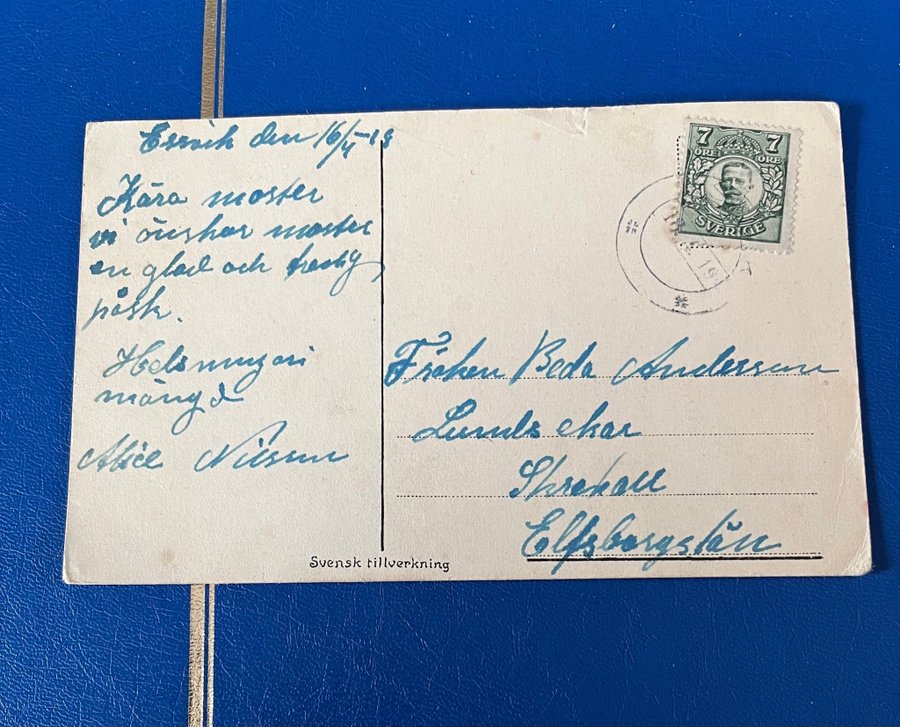 Essvik den 16/4-19
Kära moster
vi önskar moster
en glad och trevlig
påsk.
Helsningar i
mängd
Alice Nilsson
7 7
ÖRE ÖRE
SVERIGE
Fröken Beda Andersson
Lunds ekar
Elfsborgslän
Svensk tillverkning